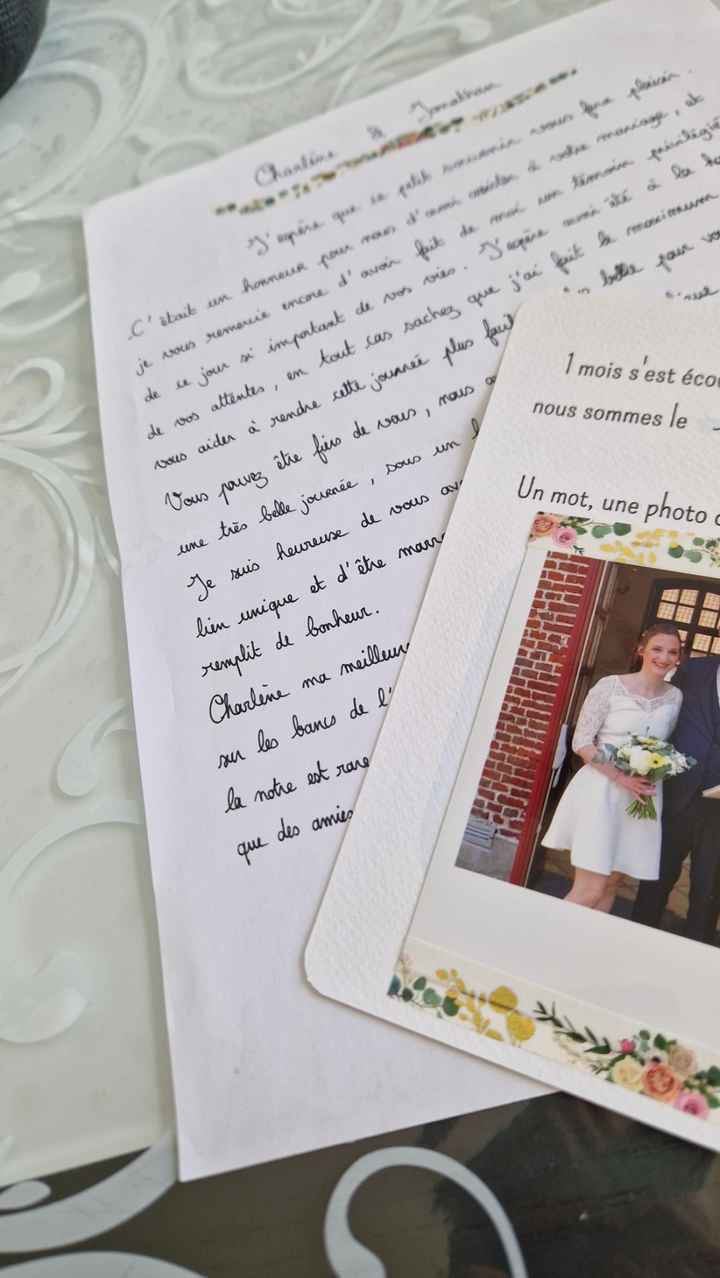 Charlène & Jonathan
J'espère que ce petit souvenir vous fera plaisir.
C'était un honneur pour nous d'avoir assister à votre mariage, et
je vous remercie encore d'avoir fait de moi un témoin privilégié
de ce jour si important de vos vies. J'espère avoir été à la
de vos attentes, en tout cas sachez que j'ai fait le maximum
vous aider à rendre cette journée plus belle pour
Vous pouvez être fiers de vous, nous
une très belle journée, sous un
Je suis heureuse de vous
lien unique et d'être
remplit de bonheur.
Charlène ma
sur les bancs de
la notre est rare
que des amies
1 mois s'est
nous sommes le
Un mot, une photo